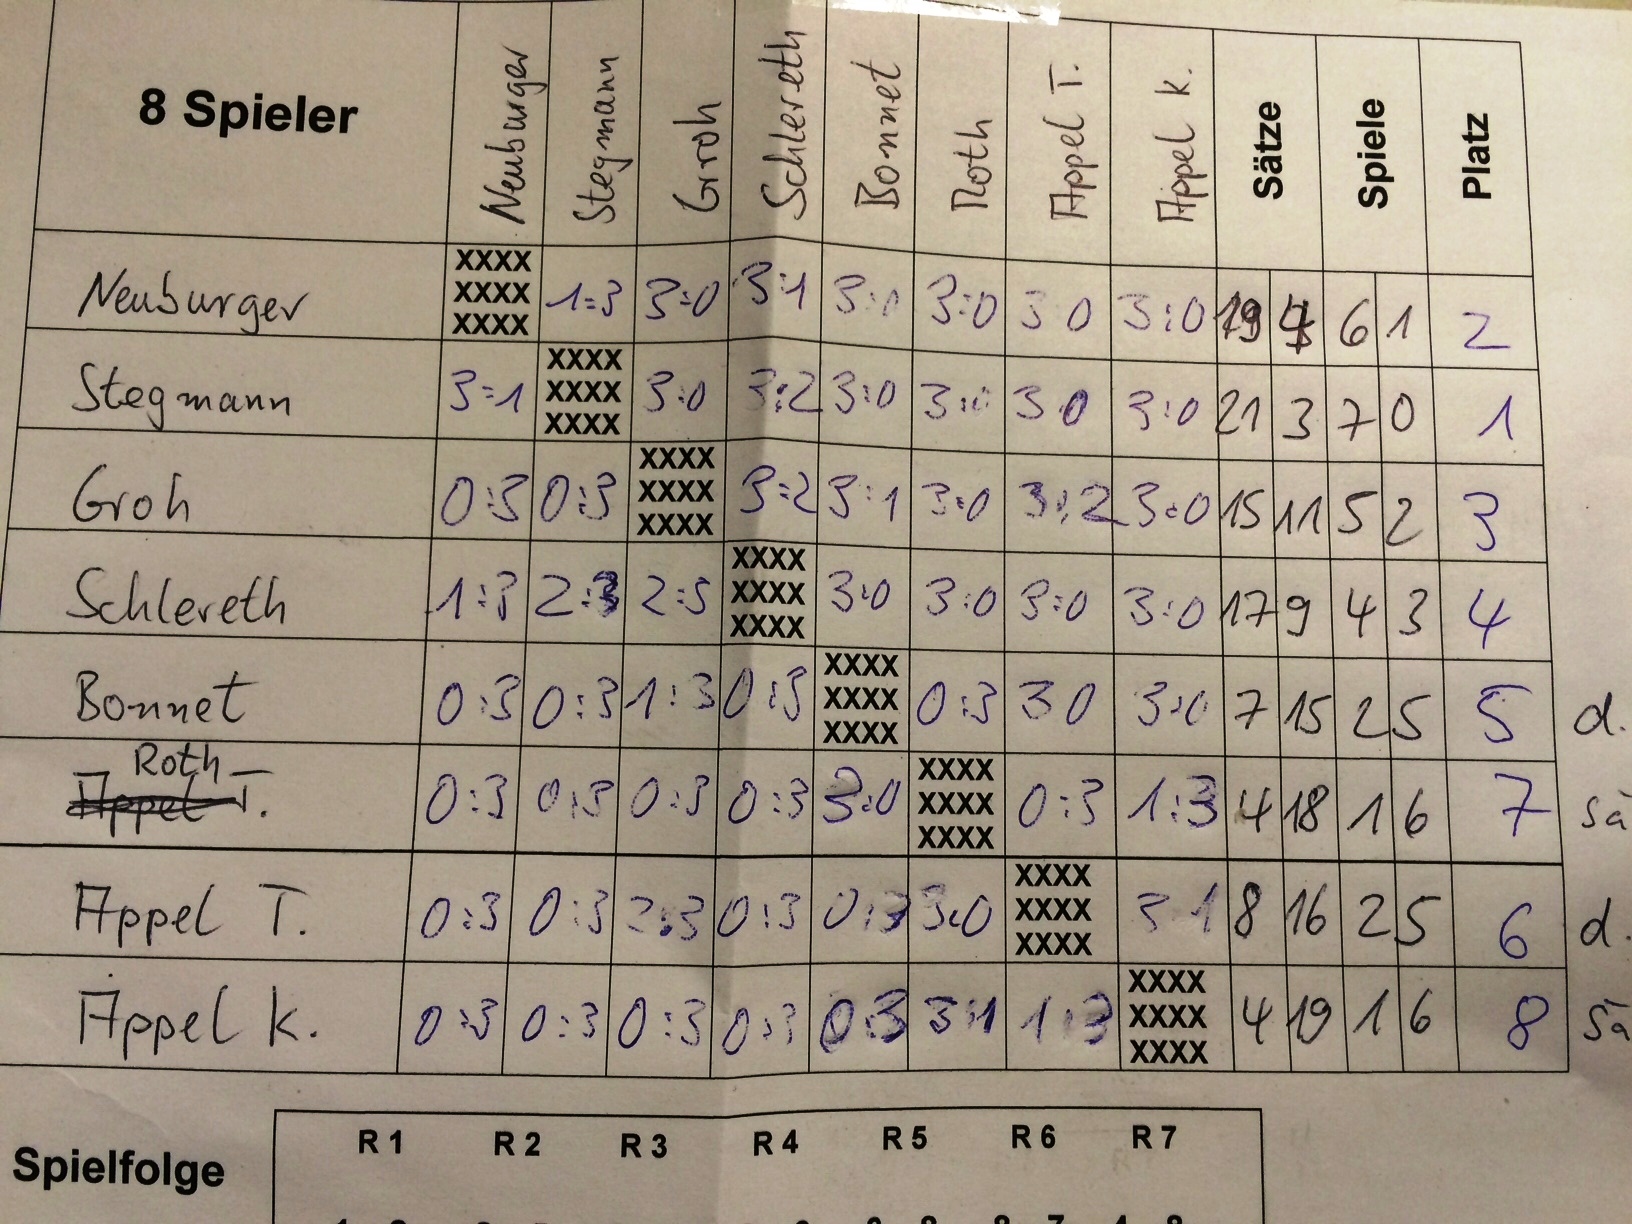 8 Spieler Neuburger Stegmann Groh Schlereth Bonnet Roth Appel T. Appel K. Sätze Spiele Platz
Neuburger XXXX XXXX XXXX 1:3 3:0 3:1 3:0 3:0 3 0 3:0 19 4 6 1 2
Stegmann 3:1 XXXX XXXX XXXX 3:0 3:2 3:0 3:0 3 0 3:0 21 3 7 0 1
Groh 0:3 0:3 XXXX XXXX XXXX 3:2 3:1 3:0 3:2 3:0 15 11 5 2 3
Schlereth 1:3 2:3 2:3 XXXX XXXX XXXX 3:0 3:0 3:0 3:0 17 9 4 3 4
Bonnet 0:3 0:3 1:3 0:3 XXXX XXXX XXXX 0:3 3 0 3:0 7 15 2 5 5 d.
Roth
Appel T. 0:3 0:3 0:3 0:3 3:0 XXXX XXXX XXXX 0:3 1:3 4 18 1 6 7 sä
Appel T. 0:3 0:3 2:3 0:3 0:3 3:0 XXXX XXXX XXXX 3 1 8 16 2 5 6 d.
Appel K. 0:3 0:3 0:3 0:3 0:3 3:1 1:3 XXXX XXXX XXXX 4 19 1 6 8 sä
Spielfolge R 1 R 2 R 3 R 4 R 5 R 6 R 7